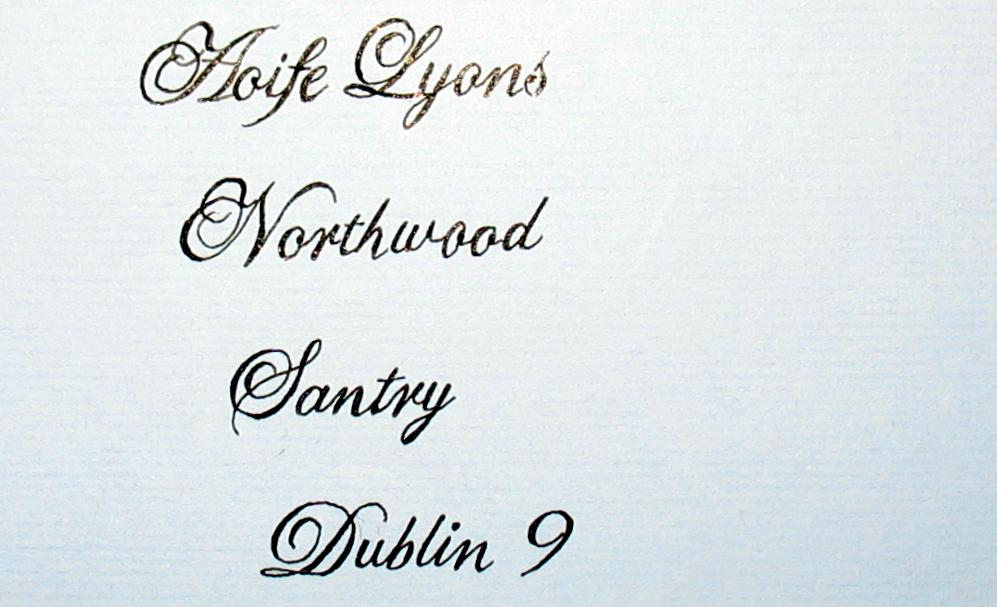 Aoife Lyons
Northwood
Santry
Dublin 9